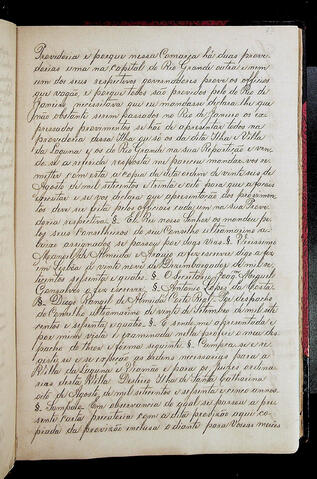 Provedoria e porque nessa Comarca há duas prove
dorias uma na capital do Rio Grande outra e nem
um dos seus respectivos governadores prove os officios
que vagão, e porque todos são providos pelo de Rio de
Janeiro, necessitava que eu mandasse declarar lhe que
não obstante serem passados no Rio de Janeiro os ex
pressados provimentos se hão de apresentar todos na
provedoria dessa Ilha que só os da dita Ilha e Villa
da Laguna e os do Rio Grande na sua Repartição e ven
do se a referida resposta me pareceu mandar vos re
metter com esta a copia da dita ordem de vinte seis de
Agosto de mil setecentos e trinta e oito para que a façaes
executar e se vos declara que apresentação dos provimen
tos deve ser feita pelos officiaes cada um na sua Prove
doria respectiva. §. El Rei nosso Senhor os mandou pe
los seus Conselheiros do seu Conselho ultramarino a
baixo assignados se passou por duas Vias. §. Verissimo
Manoel de Almeida e Araujo a fez escrever digo a fez
em Lisboa a vinte nove de
centos e sessenta e quatro. §. O Secretario Joaq. Miguel
Gonçalves a fez escrever. §. Antonio Lopes da Costa
§. Diogo Rangel de Almeida Castel Br.
do Conselho ultramarino de vinte de Setembro de mil sete
centos e sessenta e quatro. §. E sendo me apresentada e
por mim vista e examinada nella profiro o meu des
pacho de theor e forma seguinte §. Cumpra se e re
giste se e se expeção as ordens necessarias para a
Villa da Laguna e Viamão e para os juizes ordina
rios desta Villa. Desterro Ilha de Santa Catharina
oito de Agosto de mil setecentos e sessenta e cinco annos.
§. Sampaio. Em observancia do qual se passou a pre
sente carta precatoria com a dita provizão aqui co
piada da provizão inclusa e diante para Vossas mercês